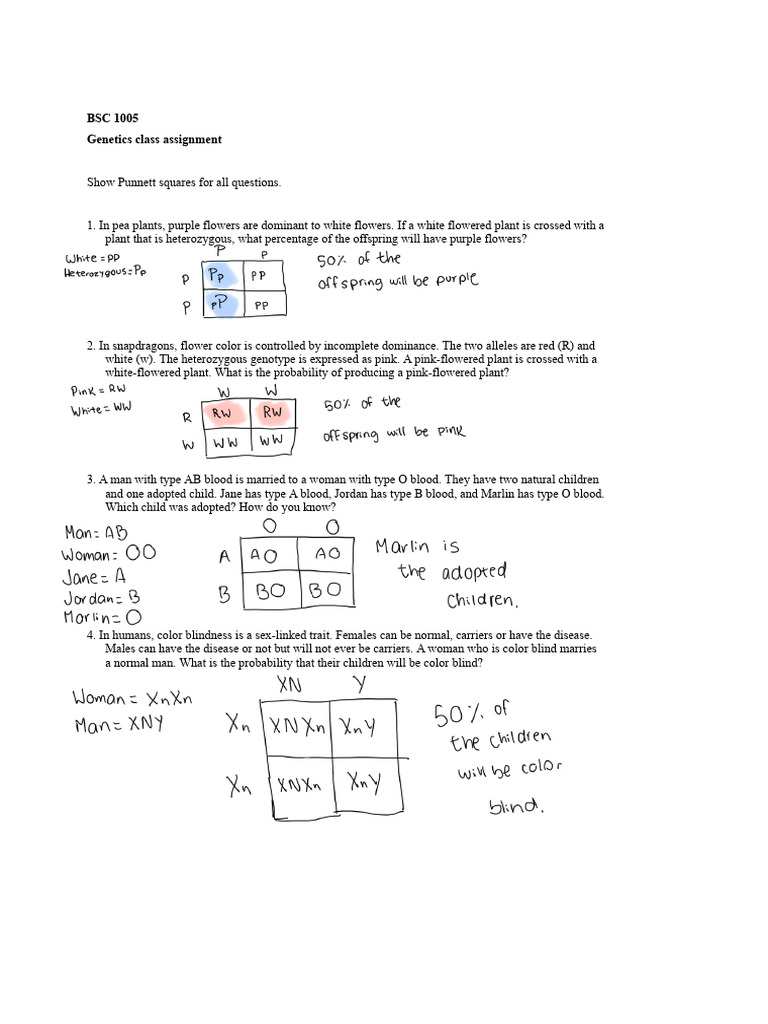 BSC 1005
Genetics class assignment
Show Punnett squares for all questions.
1. In pea plants, purple flowers are dominant to white flowers. If a white flowered plant is crossed with a
plant that is heterozygous, what percentage of the offspring will have purple flowers?
White = pp
Heterozygous = Pp
P p
p Pp pp
p pP pp
50% of the
offspring will be purple
2. In snapdragons, flower color is controlled by incomplete dominance. The two alleles are red (R) and
white (w). The heterozygous genotype is expressed as pink. A pink-flowered plant is crossed with a
white-flowered plant. What is the probability of producing a pink-flowered plant?
Pink = RW
White = WW
W W
R RW RW
W WW WW
50% of the
offspring will be pink
3. A man with type AB blood is married to a woman with type O blood. They have two natural children
and one adopted child. Jane has type A blood, Jordan has type B blood, and Marlin has type O blood.
Which child was adopted? How do you know?
Man = AB
Woman = OO
Jane = A
Jordan = B
Marlin = O
O O
A AO AO
B BO BO
Marlin is
the adopted
Children.
4. In humans, color blindness is a sex-linked trait. Females can be normal, carriers or have the disease.
Males can have the disease or not but will not ever be carriers. A woman who is color blind marries
a normal man. What is the probability that their children will be color blind?
Woman = XnXn
Man = XNY
XN Y
Xn XNXn XnY
Xn XNXn XnY
50% of
the children
will be color
blind.